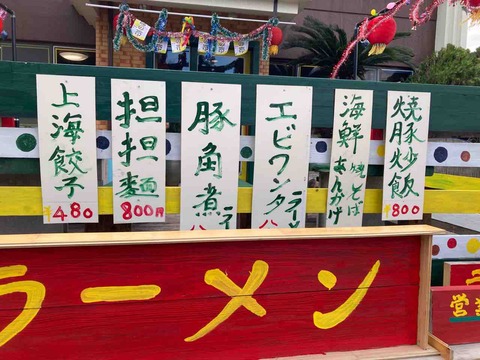 上海餃子
¥480
担担麺
800円
豚角煮
ラー
エビワンタ
ラー
海鮮焼そば
あんかけ
焼豚炒飯
¥800
ラーメン
営